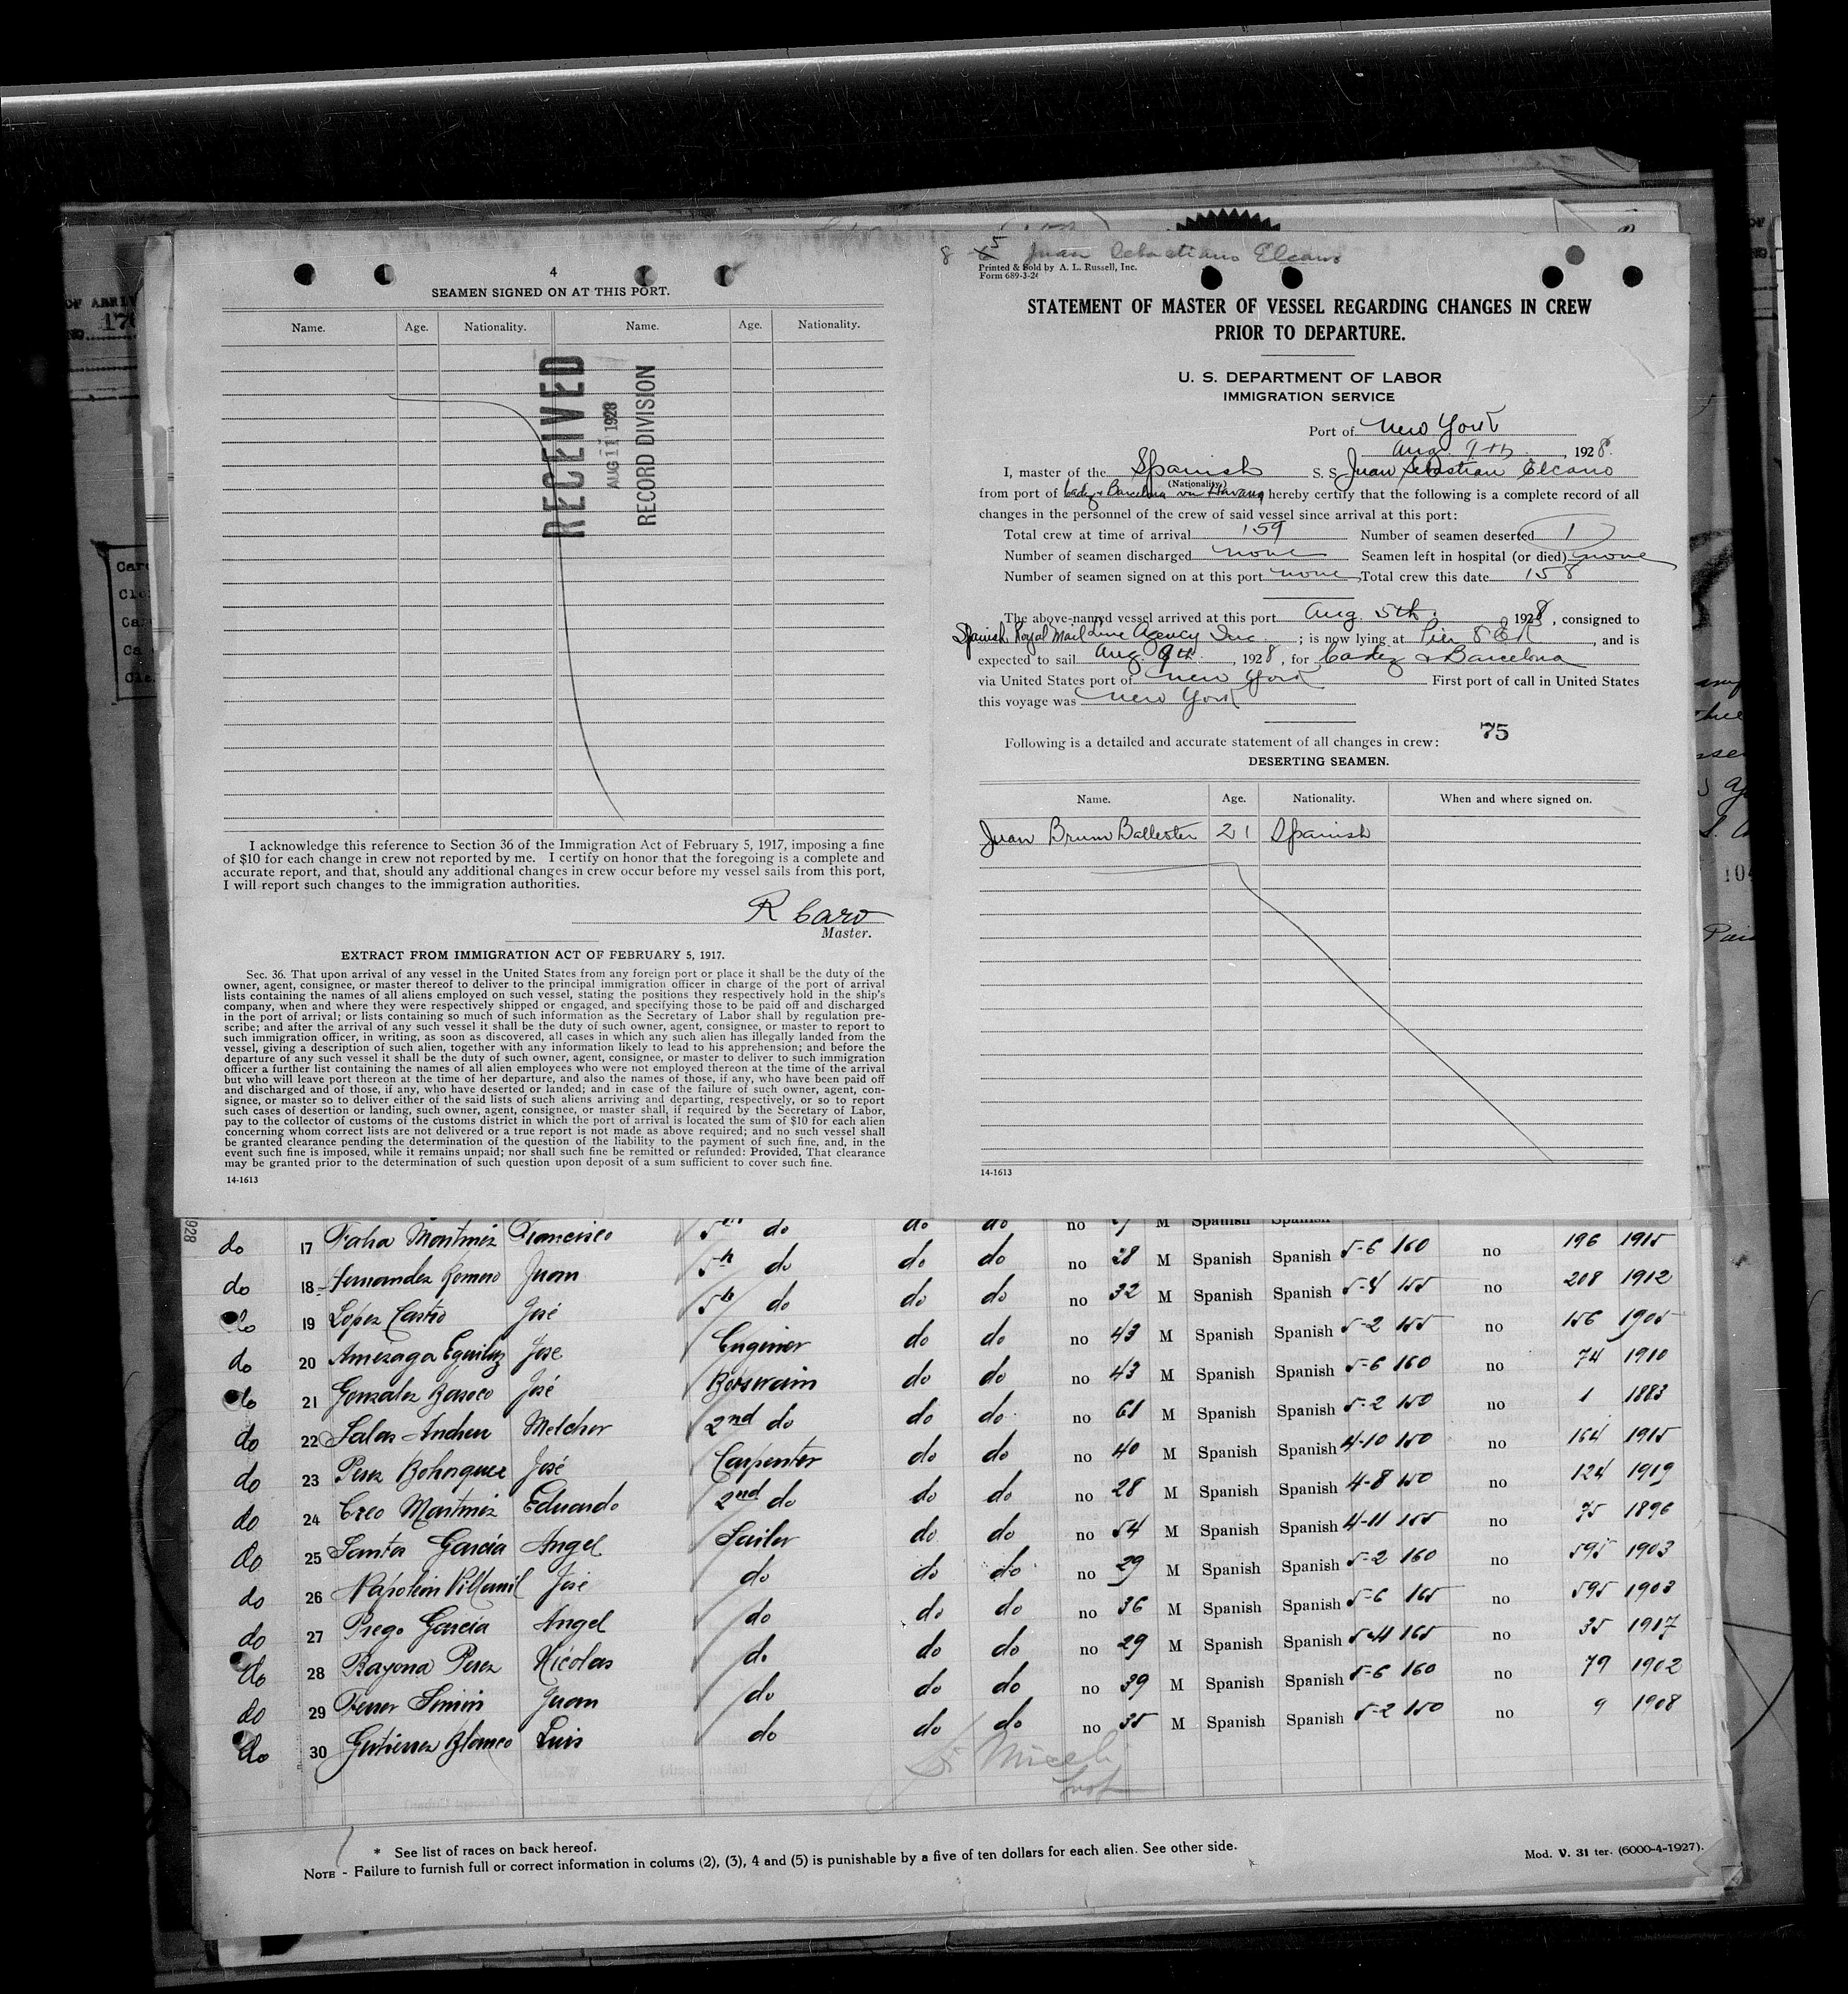 4
SEAMEN SIGNED ON AT THIS PORT.
Name. Age. Nationality. Name. Age. Nationality.
RECEIVED
AUG 11 1928
RECORD DIVISION
I acknowledge this reference to Section 36 of the Immigration Act of February 5, 1917, imposing a fine
of $10 for each change in crew not reported by me. I certify on honor that the foregoing is a complete and
accurate report, and that, should any additional changes in crew occur before my vessel sails from this port,
I will report such changes to the immigration authorities.
R Caro
Master.
EXTRACT FROM IMMIGRATION ACT OF FEBRUARY 5, 1917.
Sec. 36. That upon arrival of any vessel in the United States from any foreign port or place it shall be the duty of the
owner, agent, consignee, or master thereof to deliver to the principal immigration officer in charge of the port of arrival
lists containing the names of all aliens employed on such vessel, stating the positions they respectively hold in the ship's
company, when and where they were respectively shipped or engaged, and specifying those to be paid off and discharged
in the port of arrival; or lists containing so much of such information as the Secretary of Labor shall by regulation pre-
scribe; and after the arrival of any such vessel it shall be the duty of such owner, agent, consignee, or master to report to
such immigration officer, in writing, as soon as discovered, all cases in which any such alien has illegally landed from the
vessel, giving a description of such alien, together with any information likely to lead to his apprehension; and before the
departure of any such vessel it shall be the duty of such owner, agent, consignee, or master to deliver to such immigration
officer a further list containing the names of all alien employees who were not employed thereon at the time of the arrival
but who will leave port thereon at the time of her departure, and also the names of those, if any, who have been paid off
and discharged and of those, if any, who have deserted or landed; and in case of the failure of such owner, agent, con-
signee, or master so to deliver either of the said lists of such aliens arriving and departing, respectively, or so to report
such cases of desertion or landing, such owner, agent, consignee, or master shall, if required by the Secretary of Labor,
pay to the collector of customs of the customs district in which the port of arrival is located the sum of $10 for each alien
concerning whom correct lists are not delivered or a true report is not made as above required; and no such vessel shall
be granted clearance pending the determination of the question of the liability to the payment of such fine, and, in the
event such fine is imposed, while it remains unpaid; nor shall such fine be remitted or refunded: Provided, That clearance
may be granted prior to the determination of such question upon deposit of a sum sufficient to cover such fine.
14-1613
8 5 Juan Sebastiano Elcano
Printed & Sold by A. L. Russell, Inc.
Form 689-3-26
STATEMENT OF MASTER OF VESSEL REGARDING CHANGES IN CREW
PRIOR TO DEPARTURE.
U. S. DEPARTMENT OF LABOR
IMMIGRATION SERVICE
Port of New York
Aug. 9th, 1928.
I, master of the Spanish S. S. Juan Sebastian Elcano
(Nationality)
from port of Cadiz & Barcelona via Havana hereby certify that the following is a complete record of all
changes in the personnel of the crew of said vessel since arrival at this port:
Total crew at time of arrival 159 Number of seamen deserted 1
Number of seamen discharged none Seamen left in hospital (or died) none
Number of seamen signed on at this port none Total crew this date 158
The above-named vessel arrived at this port Aug. 5th. 1928, consigned to
Spanish Royal Mail Line Agency Inc. ; is now lying at Pier 8 ER, and is
expected to sail Aug. 9th, 1928, for Cadiz & Barcelona
via United States port of New York First port of call in United States
this voyage was New York
75
Following is a detailed and accurate statement of all changes in crew:
DESERTING SEAMEN.
Name. Age. Nationality. When and where signed on.
Juan Brum Ballester 21 Spanish
14-1613
do 17 Francisco 5th do do do no M Spanish Spanish
do 18 Fernandez Romero Juan 5th do do do no 28 M Spanish Spanish 5-6 160 no 196 1915
do 19 Lopez Castro José 5th do do do no 32 M Spanish Spanish 5-4 155 no 208 1912
do 20 Amezaga Eguiluz Jose Enginier do do no 43 M Spanish Spanish 5-2 155 no 156 1905
do 21 Gonzalez Basoco José Botswain do do no 43 M Spanish Spanish 5-6 160 no 74 1910
do 22 Salas Andreu Melchor 2nd do do do no 61 M Spanish Spanish 5-2 150 no 1 1883
do 23 Perez Bohorquez José Carpenter do do no 40 M Spanish Spanish 4-10 150 no 164 1915
do 24 Creo Martinez Eduardo 2nd do do do no 28 M Spanish Spanish 4-8 150 no 124 1919
do 25 Santos Garcia Angel Sailor do do no 54 M Spanish Spanish 4-11 155 no 75 1896
do 26 Napoleon Villamil José do do do no 29 M Spanish Spanish 5-2 160 no 595 1903
do 27 Prego Garcia Angel do do do no 36 M Spanish Spanish 5-6 165 no 595 1903
do 28 Bayona Perez Nicolas do do do no 29 M Spanish Spanish 5-4 165 no 35 1917
do 29 Ferrer Simin Juan do do do no 39 M Spanish Spanish 5-6 160 no 79 1902
do 30 Gutierrez Blanco Luis do do do no 35 M Spanish Spanish 5-2 150 no 9 1908
* See list of races on back hereof.
NOTE - Failure to furnish full or correct information in colums (2), (3), 4 and (5) is punishable by a five of ten dollars for each alien. See other side.
Mod. V. 31 ter. (6000-4-1927).